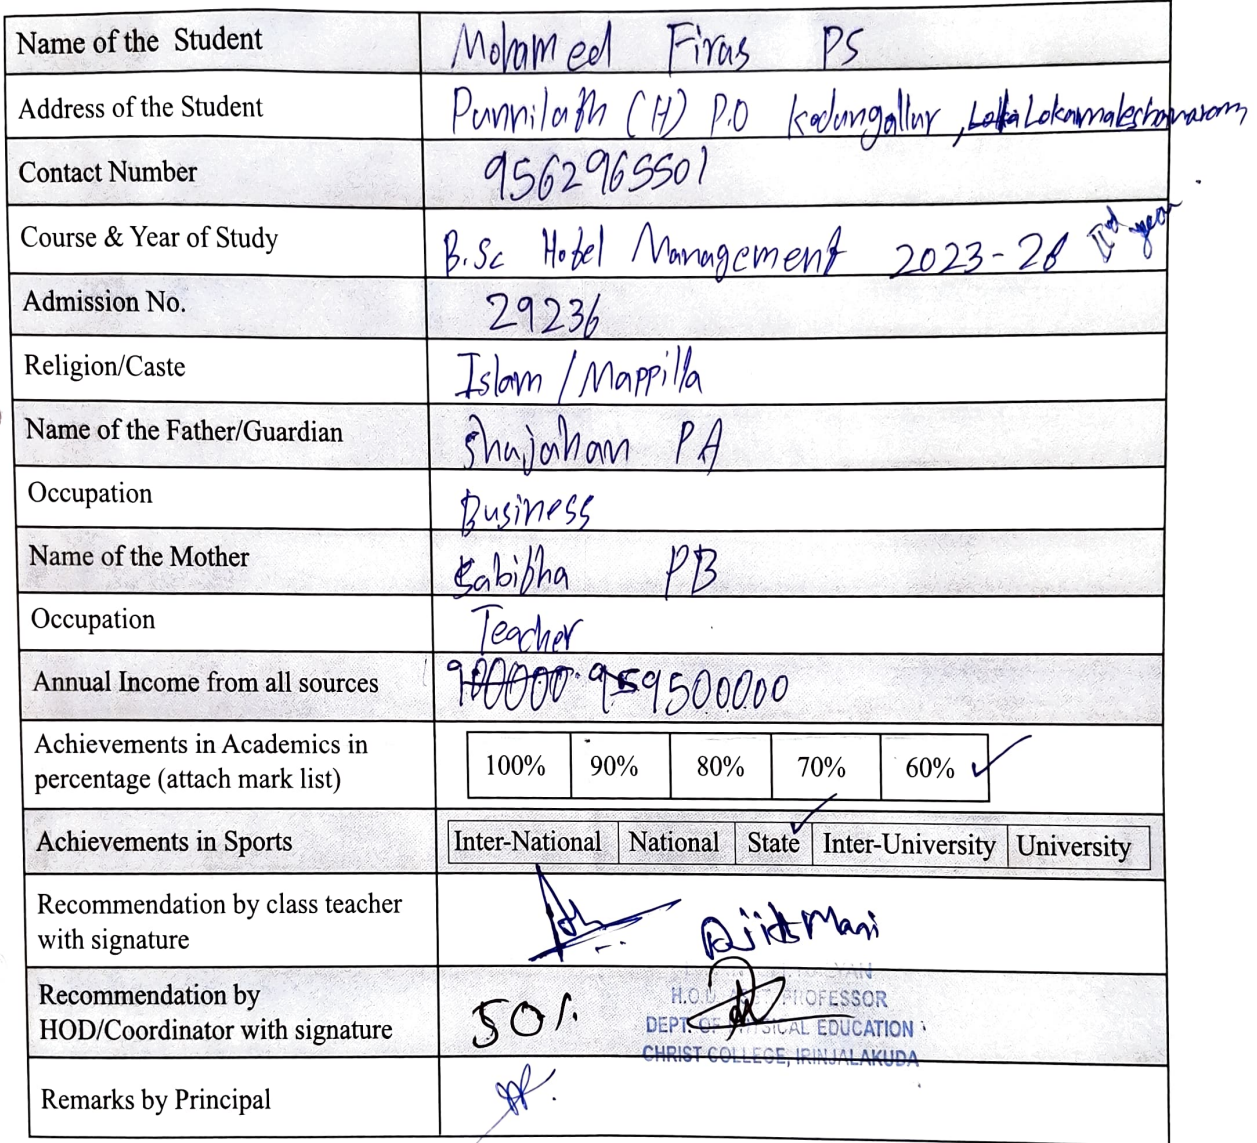 Name of the Student Mohameed Firas PS
Address of the Student Punnilath (H) P.O Kodungallur , Lokamaleshwaram
Contact Number 9562965501
Course & Year of Study B.Sc Hotel Management 2023-26 IInd year
Admission No. 29236
Religion/Caste Islam / Mappilla
Name of the Father/Guardian Shajahan PA
Occupation Business
Name of the Mother Sabitha PB
Occupation Teacher
Annual Income from all sources 9500000
Achievements in Academics in
percentage (attach mark list)
100% 90% 80% 70% 60% ✓
Achievements in Sports Inter-National National State ✓ Inter-University University
Recommendation by class teacher
with signature
Recommendation by
HOD/Coordinator with signature
50%
H.O.D PROFESSOR
DEPT. OF PHYSICAL EDUCATION
CHRIST COLLEGE, IRINJALAKUDA
Remarks by Principal